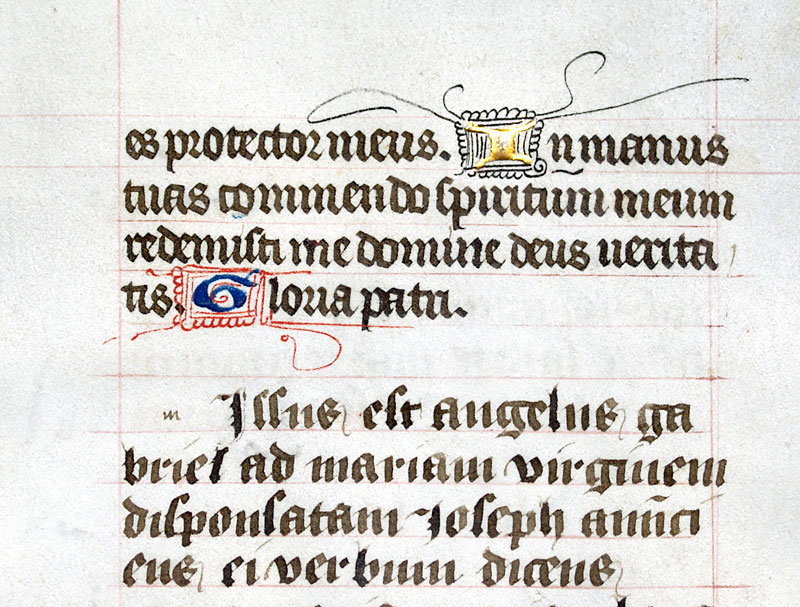 es protector meus. In manus
tuas commendo spiritum meum
redemisti me domine deus uerita
tis. Gloria patri.
m Issus est angelus ga
briel ad mariam virginem
disponsatam Joseph annũci
ens ei verbum dicens